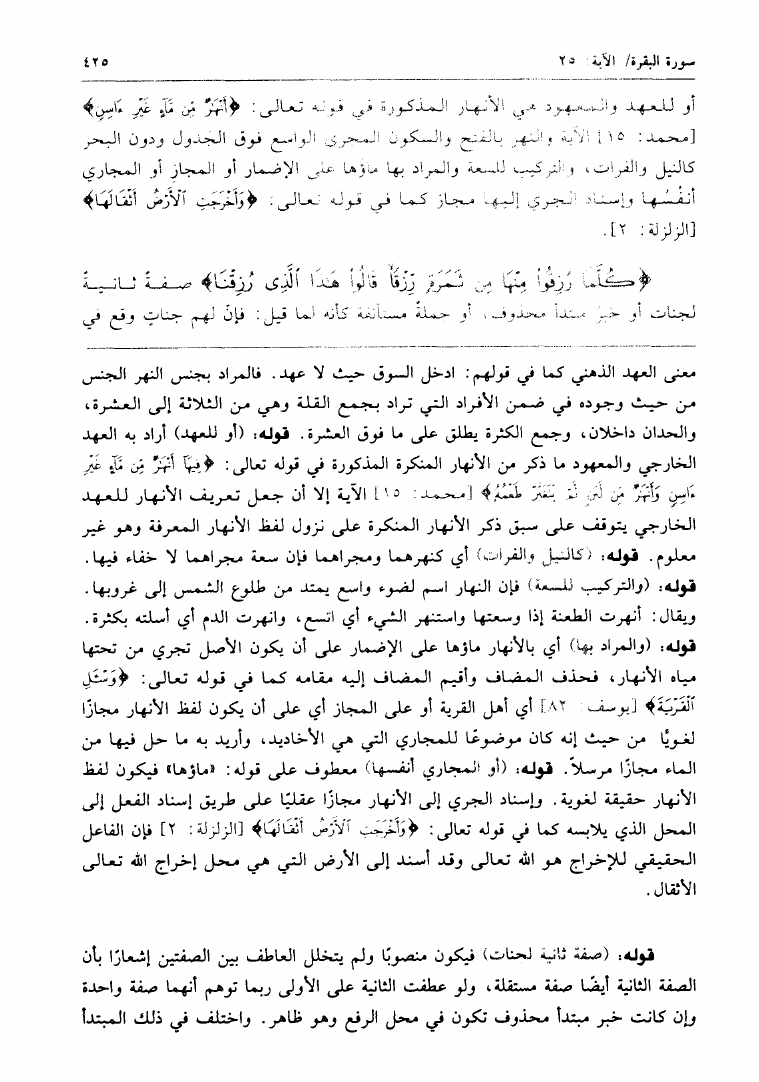 سورة البقرة/ الآية: ٢٥
٤٢٥
أو للعهد والمعهود هي الأنهار المذكورة في قوله تعالى: ﴿أَنْهَٰرٌ مِّن مَّآءٍ غَيْرِ ءَاسِنٍ﴾
[محمد: ١٥] الآية والنهر بالفتح والسكون المجرى الواسع فوق الجدول ودون البحر
كالنيل والفرات، والتركيب للسعة والمراد بها ماؤها على الإضمار أو المجاز أو المجاري
أنفُسُها وإسناد الجري إليها مجاز كما في قوله تعالى: ﴿وَأَخْرَجَتِ ٱلْأَرْضُ أَثْقَالَهَا﴾
[الزلزلة: ٢].
﴿كُلَّمَا رُزِقُوا۟ مِنْهَا مِن ثَمَرَةٍ رِّزْقًا قَالُوا۟ هَٰذَا ٱلَّذِى رُزِقْنَا﴾ صفةٌ ثانيةٌ
لجنات أو خبرُ مبتدأ محذوف، أو جملةٌ مستأنفة كأنه لما قيل: فإنّ لهم جناتٍ وقع في
معنى العهد الذهني كما في قولهم: ادخل السوق حيث لا عهد. فالمراد بجنس النهر الجنس
من حيث وجوده في ضمن الأفراد التي تراد بجمع القلة وهي من الثلاثة إلى العشرة،
والحدان داخلان، وجمع الكثرة يطلق على ما فوق العشرة. قوله: (أو للعهد) أراد به العهد
الخارجي والمعهود ما ذكر من الأنهار المنكرة المذكورة في قوله تعالى: ﴿فِيهَآ أَنْهَٰرٌ مِّن مَّآءٍ غَيْرِ
ءَاسِنٍ وَأَنْهَٰرٌ مِّن لَّبَنٍ لَّمْ يَتَغَيَّرْ طَعْمُهُۥ﴾ [محمد: ١٥] الآية إلا أن جعل تعريف الأنهار للعهد
الخارجي يتوقف على سبق ذكر الأنهار المنكرة على نزول لفظ الأنهار المعرفة وهو غير
معلوم. قوله: (كالنيل والفرات) أي كنهرهما ومجراهما فإن سعة مجراهما لا خفاء فيها.
قوله: (والتركيب للسعة) فإن النهار اسم لضوء واسع يمتد من طلوع الشمس إلى غروبها.
ويقال: أنهرت الطعنة إذا وسعتها واستنهر الشيء أي اتسع، وانهرت الدم أي أسلته بكثرة.
قوله: (والمراد بها) أي بالأنهار ماؤها على الإضمار على أن يكون الأصل تجري من تحتها
مياه الأنهار، فحذف المضاف وأقيم المضاف إليه مقامه كما في قوله تعالى: ﴿وَسْـَٔلِ
ٱلْقَرْيَةَ﴾ [يوسف: ٨٢] أي أهل القرية أو على المجاز أي على أن يكون لفظ الأنهار مجازًا
لغويًا من حيث إنه كان موضوعًا للمجاري التي هي الأخاديد، وأريد به ما حل فيها من
الماء مجازًا مرسلاً. قوله: (أو المجاري أنفسها) معطوف على قوله: «ماؤها» فيكون لفظ
الأنهار حقيقة لغوية. وإسناد الجري إلى الأنهار مجازًا عقليًا على طريق إسناد الفعل إلى
المحل الذي يلابسه كما في قوله تعالى: ﴿وَأَخْرَجَتِ ٱلْأَرْضُ أَثْقَالَهَا﴾ [الزلزلة: ٢] فإن الفاعل
الحقيقي للإخراج هو الله تعالى وقد أسند إلى الأرض التي هي محل إخراج الله تعالى
الأثقال.
قوله: (صفة ثانية لجنات) فيكون منصوبًا ولم يتخلل العاطف بين الصفتين إشعارًا بأن
الصفة الثانية أيضًا صفة مستقلة، ولو عطفت الثانية على الأولى ربما توهم أنهما صفة واحدة
وإن كانت خبر مبتدأ محذوف تكون في محل الرفع وهو ظاهر. واختلف في ذلك المبتدأ